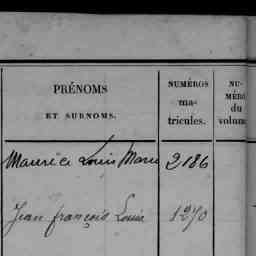 PRÉNOMS
ET SURNOMS.
NUMÉROS
ma-
tricules.
NU-
MÉRO
du
volum
Maurice Louis Marie 2186
Jean françois Louis 1270